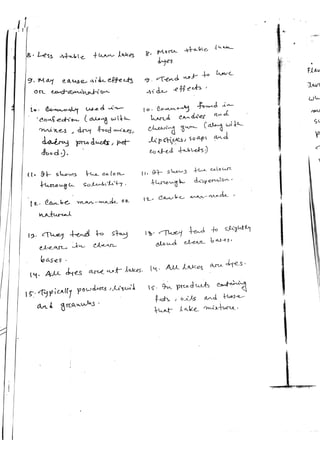 8. Less stable than lakes
8. More stable than dyes
9. May cause side effects
or contamination
9. Tend not to have
side effects.
10. Commonly used in
confection (along with
mixes, dry food mixes,
dairy products, pet
food).
10. Commonly found in
hard candies and
chewing gum (along with
lipsticks, soaps and
coated tablets)
11. It shows the color
through solubility.
11. It shows the colour
through dispersion.
12. Can be man-made or
natural
12. Can be man-made.
13. They tend to stay
clear in clear
bases.
13. They tend to slightly
cloud clear bases.
14. All dyes are not lakes.
14. All lakes are dyes.
15. Typically powders, liquid
and granules.
15. In products containing
fats, oils and those
that lake mixture.